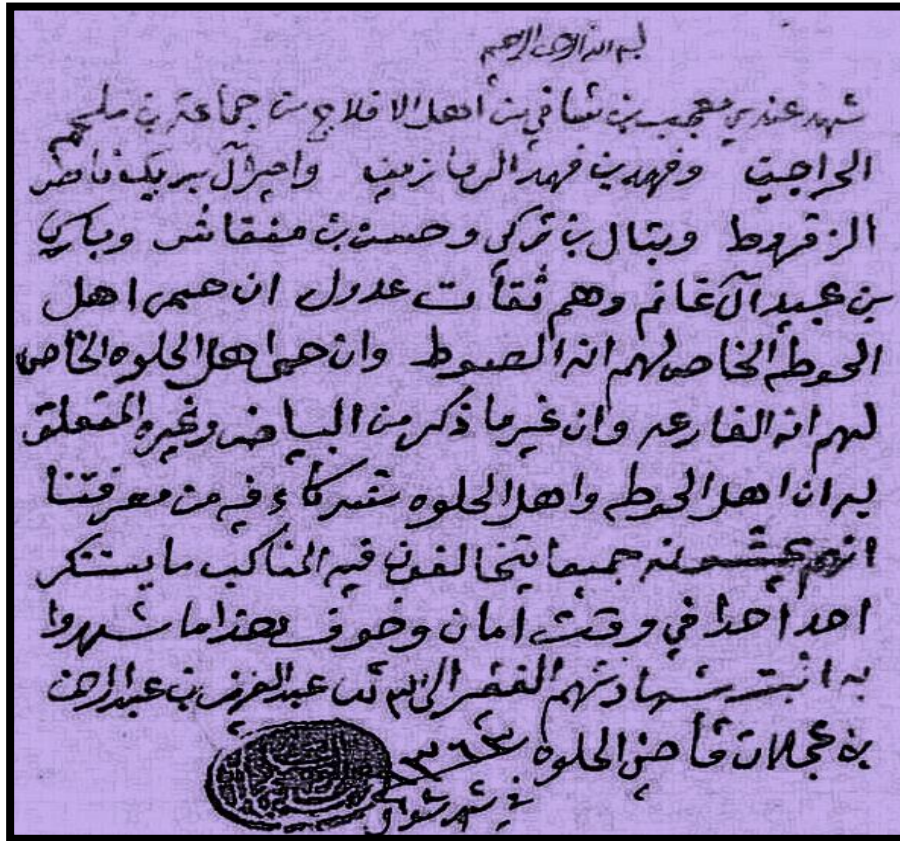 بسم الله الرحمن الرحيم
شهد عندي معجب بن شافي من اهل الافلاج من جماعة بن ملحم
الراجين وفهد بن فهد الرمازين وامير آل بريك ناصر
الزقروط وبتال بن تركي وحسن بن منقاش وباري
بن عبيد آل غانم وهم ثقات عدول ان حمى اهل
الحوطه الخاص لهم انه الصوط وان حمى اهل الحلوه الخاص
لهم انه الفارعه وان غير ما ذكر من البياض وغيره المتعلق
به ان اهل الحوطه واهل الحلوه شركاء فيه من معرفتنا
انهم جميعا يتخالفون فيه المناكب ما يستنكر
احد أحدا في وقت أمان وخوف هذا ما شهدوا
به اثبت شهادتهم الفقير الى الله عبد العزيز بن عبد الرحمن
بن عجلان قاضي الحلوه ١٣٦٣
في شهر شوال